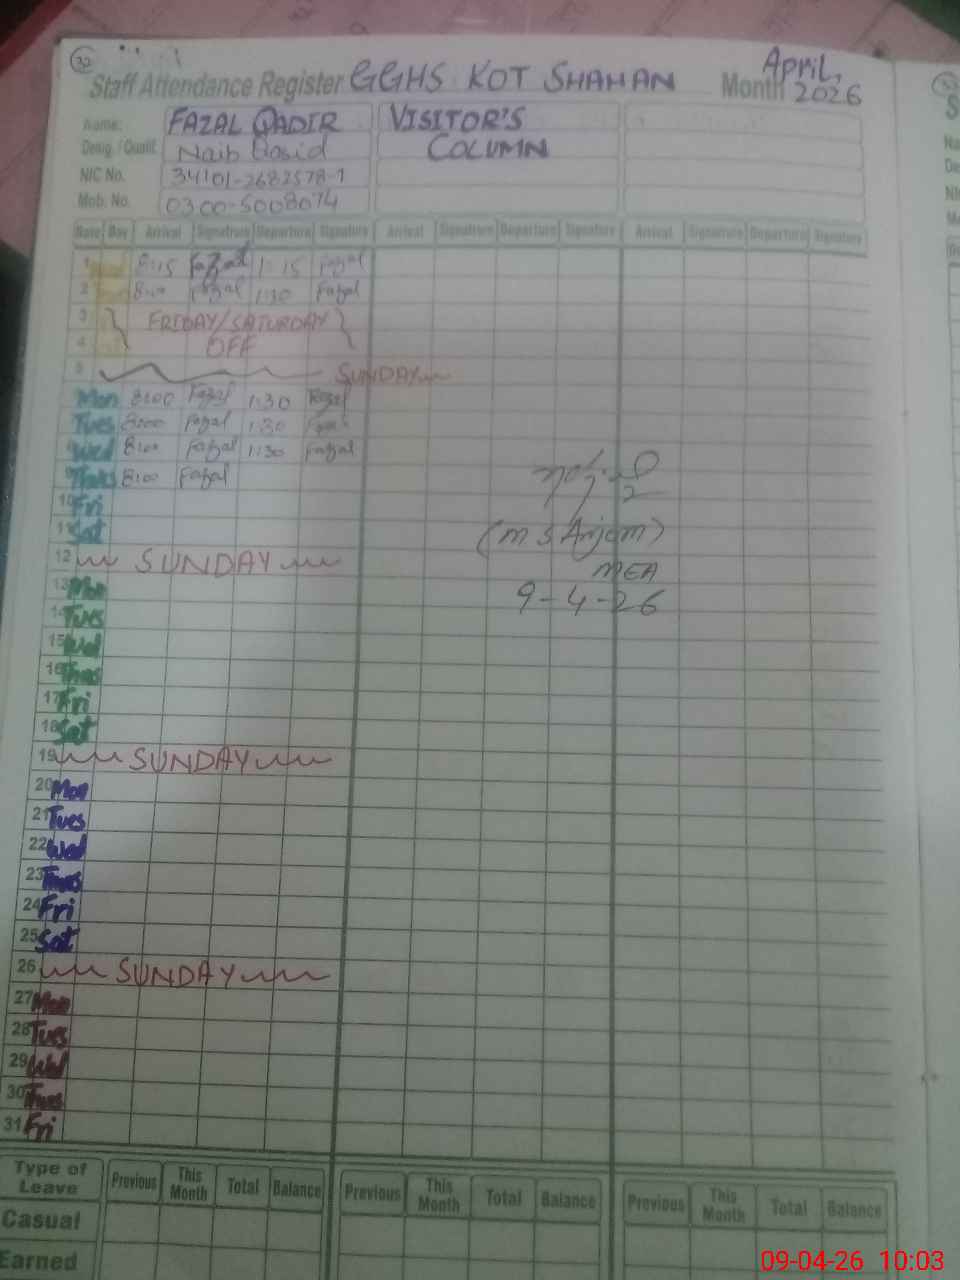 32
Staff Attendance Register GGHS KOT SHAHAN Month April, 2026
Name: FAZAL QADIR VISITOR'S
Desig. / Qualif. Naib Qasid COLUMN
NIC No. 34101-2682578-1
Mob. No. 0300-5008074
Date Day Arrival Signature Departure Signature Arrival Signature Departure Signature Arrival Signature Departure Signature
1 8:15 Fazal 1:15 Fazal
2 8:00 Fazal 1:30 Fazal
3 FRIDAY/SATURDAY
4 OFF
5 SUNDAY
Mon 8:00 Fazal 1:30 Fazal
Tues 8:00 Fazal 1:30 Fazal
Wed 8:00 Fazal 1:30 Fazal
Thurs 8:00 Fazal
10 Fri
11 Sat
(M S Anjom)
12 SUNDAY
MEA
13 Mon
9-4-26
14 Tues
15 Wed
16 Thus
17 Fri
18 Sat
19 SUNDAY
20 Mon
21 Tues
22 Wed
23 Thus
24 Fri
25 Sat
26 SUNDAY
27 Mon
28 Tues
29 Wed
30 Thus
31 Fri
Type of Leave Previous This Month Total Balance Previous This Month Total Balance Previous This Month Total Balance
Casual
Earned
09-04-26 10:03